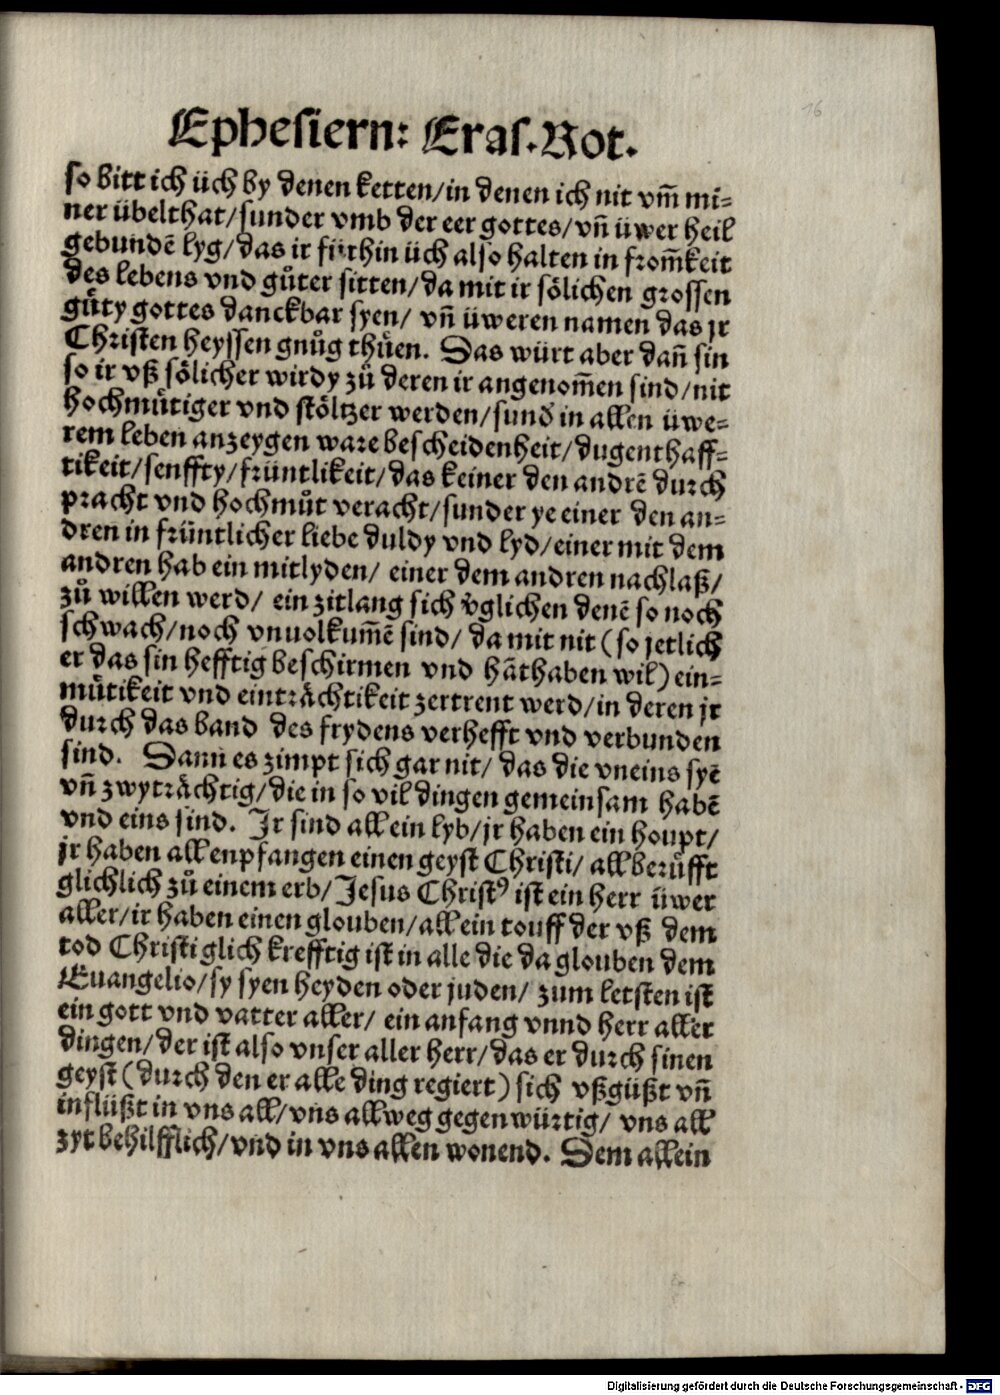 16
Ephesiern: Eras. Rot.
so bitt ich üch by denen ketten/in denen ich nit vm̄ mi⸗
ner übelthat/sunder vmb der eer gottes/vn̄ üwer heil
gebundē lyg/das ir fürhin üch also halten in from̄keit
des lebens vnd gůter sitten/da mit ir sölichen grossen
gůty gottes danckbar syen/ vn̄ üweren namen das jr
Christen heyssen gnůg thüen. Das würt aber dan̄ sin
so ir vß sölicher wirdy zů deren ir angenom̄en sind/nit
hochmütiger vnd stöltzer werden/sund̄ in allen üwe⸗
rem leben anzeygen ware bescheidenheit/dugenthaff⸗
tikeit/senffty/früntlikeit/das keiner den andrē durch
pracht vnd hochmůt veracht/sunder ye einer den an⸗
dren in früntlicher liebe duldy vnd lyd/einer mit dem
andren hab ein mitlyden/ einer dem andren nachlaß/
zů willen werd/ ein zitlang sich v̄glichen denē so noch
schwach/noch vnuolkum̄ē sind/ da mit nit (so jetlich
er das sin hefftig beschirmen vnd hāthaben wil) ein⸗
mütikeit vnd einträchtikeit zertrent werd/in deren jr
durch das band des frydens verhefft vnd verbunden
sind. Dann es zimpt sich gar nit/ das die vneins syē
vn̄ zwyträchtig/die in so vil dingen gemeinsam habē
vnd eins sind. Jr sind all ein lyb/jr haben ein houpt/
jr haben all enpfangen einen geyst Christi/ all berüfft
glichlich zů einem erb/Jesus Christꝰ ist ein herr üwer
aller/ir haben einen glouben/all ein touff der vß dem
tod Christi glich krefftig ist in alle die da glouben dem
Euangelio/sy syen heyden oder juden/ zum letsten ist
ein gott vnd vatter aller/ ein anfang vnnd herr aller
dingen/der ist also vnser aller herr/das er durch sinen
geyst (durch den er alle ding regiert) sich vßgüßt vn̄
inflüßt in vns all/vns allweg gegenwürtig/ vns all
zyt behilfflich/vnd in vns allen wonend. Dem allein
Digitalisierung gefördert durch die Deutsche Forschungsgemeinschaft - DFG